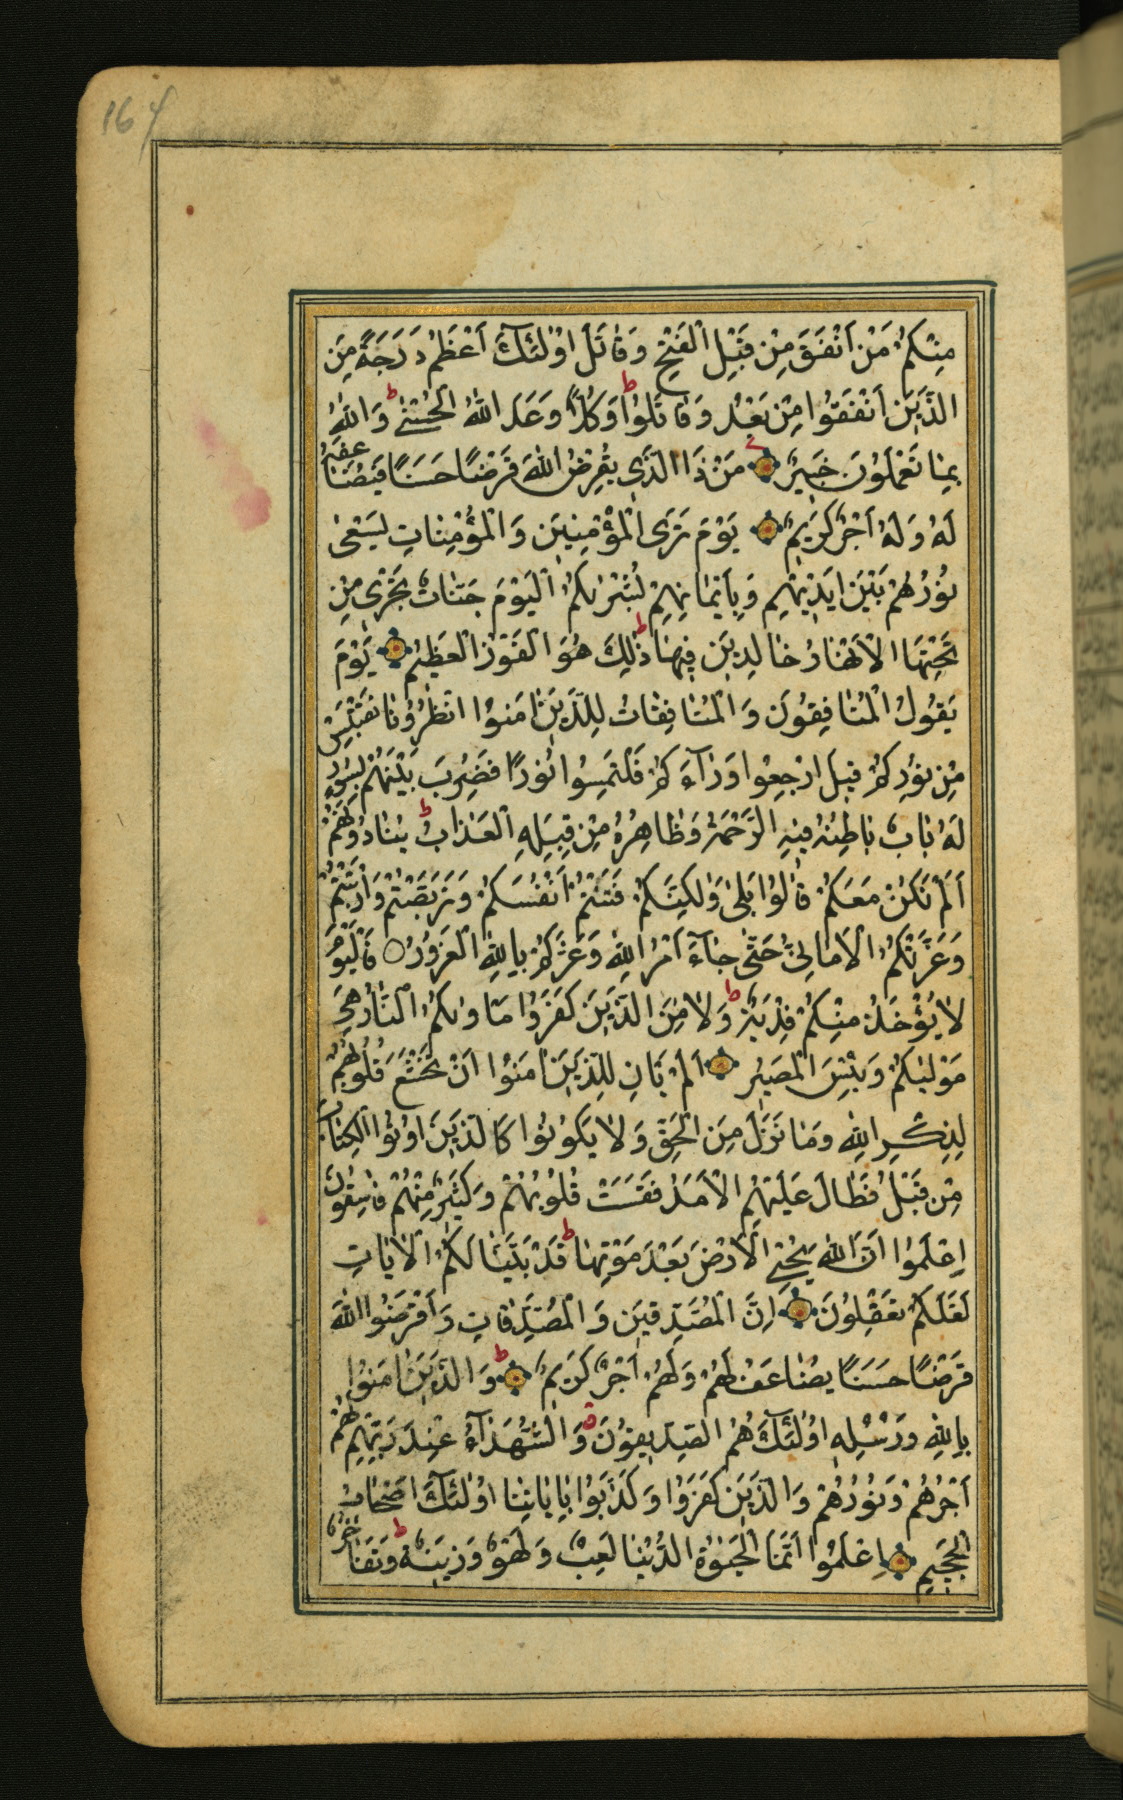 164
مِنْكُمْ مَنْ اَنْفَقَ مِنْ قَبْلِ الْفَتْحِ وَقَاتَلَ اُولٰئِكَ اَعْظَمُ دَرَجَةً مِنَ
الَّذِينَ اَنْفَقُوا مِنْ بَعْدُ وَقَاتَلُوا ط وَكُلًّا وَعَدَ اللّٰهُ الْحُسْنٰى ط وَاللّٰهُ
بِمَا تَعْمَلُونَ خَبِيرٌ مَنْ ذَا الَّذِي يُقْرِضُ اللّٰهَ قَرْضًا حَسَنًا فَيُضَاعِفَهُ
لَهُ وَلَهُ اَجْرٌ كَرِيمٌ يَوْمَ تَرَى الْمُؤْمِنِينَ وَالْمُؤْمِنَاتِ يَسْعٰى
نُورُهُمْ بَيْنَ اَيْدِيهِمْ وَبِاَيْمَانِهِمْ بُشْرٰىكُمُ الْيَوْمَ جَنَّاتٌ تَجْرِي مِنْ
تَحْتِهَا الْاَنْهَارُ خَالِدِينَ فِيهَا ط ذٰلِكَ هُوَ الْفَوْزُ الْعَظِيمُ يَوْمَ
يَقُولُ الْمُنَافِقُونَ وَالْمُنَافِقَاتُ لِلَّذِينَ اٰمَنُوا انْظُرُونَا نَقْتَبِسْ
مِنْ نُورِكُمْ قِيلَ ارْجِعُوا وَرَآءَكُمْ فَالْتَمِسُوا نُورًا فَضُرِبَ بَيْنَهُمْ بِسُورٍ
لَهُ بَابٌ بَاطِنُهُ فِيهِ الرَّحْمَةُ وَظَاهِرُهُ مِنْ قِبَلِهِ الْعَذَابُ ط يُنَادُونَهُمْ
اَلَمْ نَكُنْ مَعَكُمْ قَالُوا بَلٰى وَلٰكِنَّكُمْ فَتَنْتُمْ اَنْفُسَكُمْ وَتَرَبَّصْتُمْ وَارْتَبْتُمْ
وَغَرَّتْكُمُ الْاَمَانِيُّ حَتّٰى جَآءَ اَمْرُ اللّٰهِ وَغَرَّكُمْ بِاللّٰهِ الْغَرُورُ فَالْيَوْمَ
لَا يُؤْخَذُ مِنْكُمْ فِدْيَةٌ ط وَلَا مِنَ الَّذِينَ كَفَرُوا مَاْوٰىكُمُ النَّارُ هِيَ
مَوْلٰيكُمْ وَبِئْسَ الْمَصِيرُ اَلَمْ يَاْنِ لِلَّذِينَ اٰمَنُوا اَنْ تَخْشَعَ قُلُوبُهُمْ
لِذِكْرِ اللّٰهِ وَمَا نَزَلَ مِنَ الْحَقِّ وَلَا يَكُونُوا كَالَّذِينَ اُوتُوا الْكِتَابَ
مِنْ قَبْلُ فَطَالَ عَلَيْهِمُ الْاَمَدُ فَقَسَتْ قُلُوبُهُمْ وَكَثِيرٌ مِنْهُمْ فَاسِقُونَ
اِعْلَمُوا اَنَّ اللّٰهَ يُحْيِي الْاَرْضَ بَعْدَ مَوْتِهَا ط قَدْ بَيَّنَّا لَكُمُ الْاٰيَاتِ
لَعَلَّكُمْ تَعْقِلُونَ اِنَّ الْمُصَّدِّقِينَ وَالْمُصَّدِّقَاتِ وَاَقْرَضُوا اللّٰهَ
قَرْضًا حَسَنًا يُضَاعَفُ لَهُمْ وَلَهُمْ اَجْرٌ كَرِيمٌ ط وَالَّذِينَ اٰمَنُوا
بِاللّٰهِ وَرُسُلِهِ اُولٰئِكَ هُمُ الصِّدِّيقُونَ وَالشُّهَدَآءُ عِنْدَ رَبِّهِمْ لَهُمْ
اَجْرُهُمْ وَنُورُهُمْ وَالَّذِينَ كَفَرُوا وَكَذَّبُوا بِاٰيَاتِنَا اُولٰئِكَ اَصْحَابُ
الْجَحِيمِ اِعْلَمُوا اَنَّمَا الْحَيٰوةُ الدُّنْيَا لَعِبٌ وَلَهْوٌ وَزِينَةٌ ط وَتَفَاخُرٌ